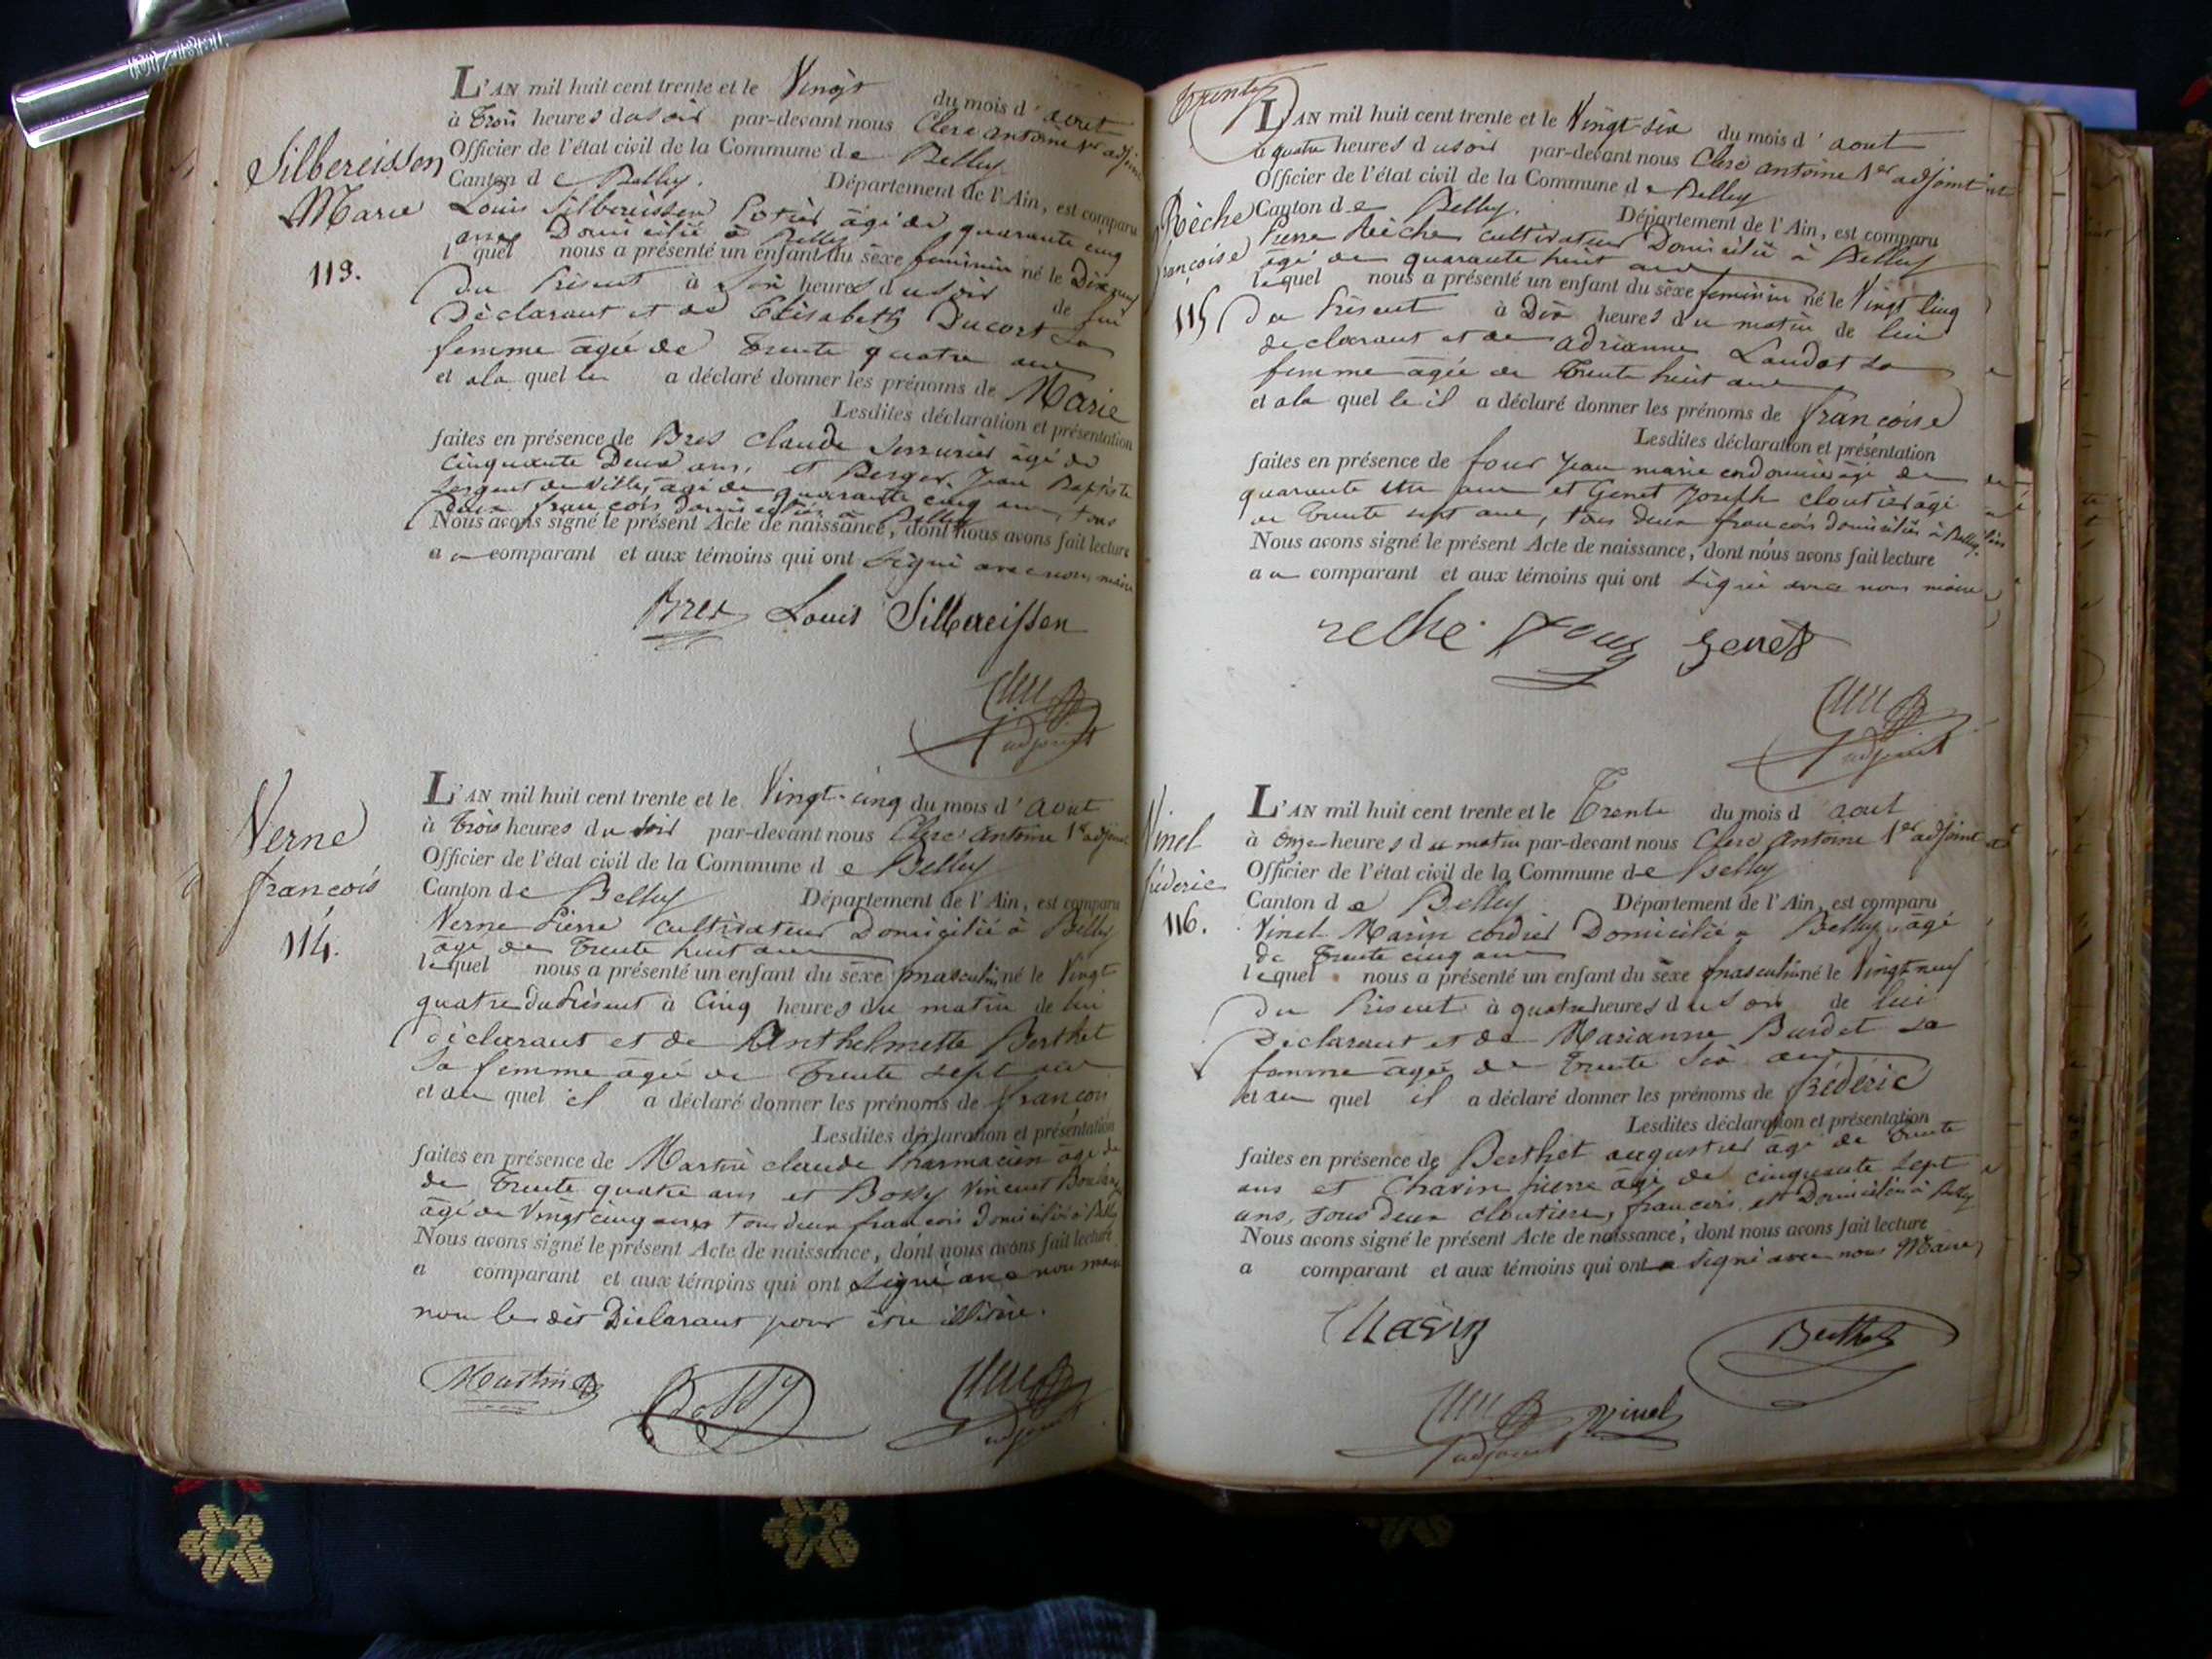 Silbereissen
Marie
113.
L'AN mil huit cent trente et le Vingt du mois d'aout
à Trois heures du soir par-devant nous Clerc antoine 1er adjoint
Officier de l'état civil de la Commune de Belley
Canton de Belley. Département de l'Ain, est comparu
Louis Silbereissen Potier âgé de quarante cinq
ans Domicilié à Belley
lequel nous a présenté un enfant du sèxe feminin né le Dix neuf
du Présent à Six heures du soir de lui
Déclarant et de Elisabeth Ducort Sa
femme âgée de Trente quatre ans
et a la quelle a déclaré donner les prénoms de Marie
Lesdites déclaration et présentation
faites en présence de Bres Claude Serrurier âgé de
cinquante Deux ans, et Berger Jean Baptiste
Sergent de Ville, âgé de quarante cinq ans, tous
deux francois domiciliés à Belley
Nous avons signé le présent Acte de naissance, dont nous avons fait lecture
au comparant et aux témoins qui ont Signé avec nous maire
Bres Louis Silbereissen
Clerc
adjoint
Verne
francois
114.
L'AN mil huit cent trente et le Vingt-cinq du mois d'aout
à Trois heures du soir par-devant nous Clerc Antoine 1er adjoint
Officier de l'état civil de la Commune de Belley
Canton de Belley Département de l'Ain, est comparu
Verne Pierre cultivateur Domicilié à Belley
âgé de Trente huit ans
lequel nous a présenté un enfant du sèxe masculin né le Vingt
quatre du Présent à Cinq heures du matin de lui
déclarant et de Anthelmette Berthet
Sa femme âgée de Trente sept ans
et au quel il a déclaré donner les prénoms de francois
Lesdites déclaration et présentation
faites en présence de Martin claude Pharmacien âgé de
de Trente quatre ans et Bossy Vincent
âgé de Vingt cinq ans tous deux francois domiciliés à Belley
Nous avons signé le présent Acte de naissance, dont nous avons fait lecture
a comparant et aux témoins qui ont Signé avec nous maire
non le dit Déclarant pour être illitéré.
Martin Bossy Clerc
adjoint
Trente
Rèche
françoise
115
L'AN mil huit cent trente et le Vingt-six du mois d'aout
à quatre heures du soir par-devant nous Clerc antoine 1er adjoint
Officier de l'état civil de la Commune de Belley
Canton de Belley. Département de l'Ain, est comparu
Pierre Rèche cultivateur Domicilié à Belley
âgé de quarante huit ans
lequel nous a présenté un enfant du sèxe feminin né le Vingt Cinq
du Présent à Dix heures du matin de lui
declarant et de adrianne Landot Sa
femme âgée de Trente huit ans
et a la quelle il a déclaré donner les prénoms de françoise
Lesdites déclaration et présentation
faites en présence de four Jean marie cordonnier âgé de
quarante un ans et Genet Joseph cloutier âgé
de Trente sept ans, tous deux francois domiciliés à Belley.
Nous avons signé le présent Acte de naissance, dont nous avons fait lecture
au comparant et aux témoins qui ont signé avec nous maire
reche four genet
Clerc
adjoint
Vinel
fréderic
116.
L'AN mil huit cent trente et le Trente du mois d aout
à onze heures du matin par-devant nous Clerc Antoine 1er adjoint
Officier de l'état civil de la Commune de Belley
Canton de Belley Département de l'Ain, est comparu
Vinel Marin cordier Domicilié à Belley, âgé
de Trente cinq ans
lequel nous a présenté un enfant du sèxe masculin né le Vingt neuf
du Présent à quatre heures du soir de lui
Declarant et de Marianne Burdet sa
femme âgée de Trente Six ans
et au quel il a déclaré donner les prénoms de fréderic
Lesdites déclaration et présentation
faites en présence de Berthet augustin âgé de Trente
ans et Chavin pierre âgé de cinquante sept
ans, tous deux cloutiers, francois, et Domiciliés à Belley
Nous avons signé le présent Acte de naissance, dont nous avons fait lecture
a comparant et aux témoins qui ont signé avec nous Maire
Chavin Berthet
Clerc Vinel
adjoint